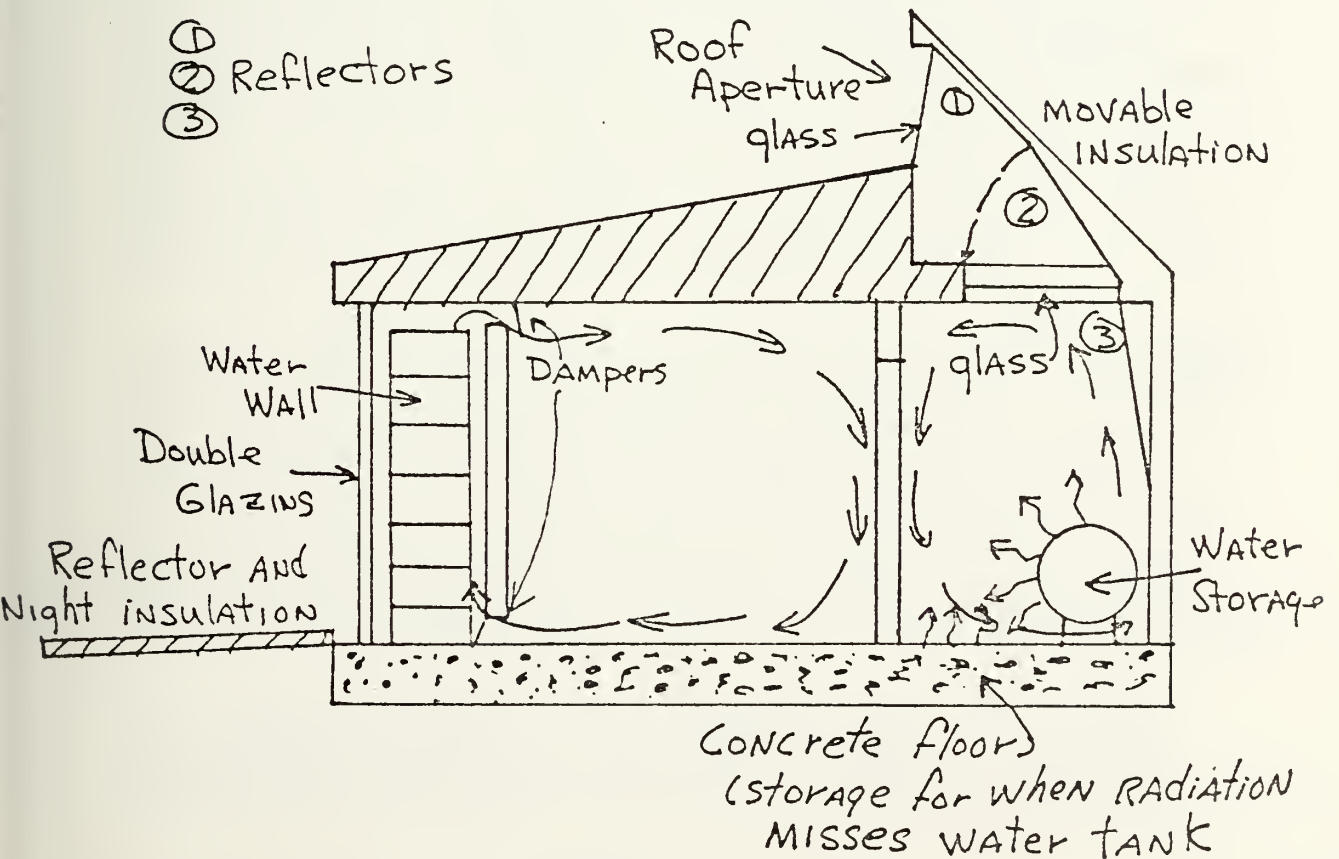 ①
② Reflectors
③
Roof
Aperture
glass
①
MOVABLE
INSULATION
②
③
glass
Dampers
Water
Wall
Double
Glazins
Reflector and
Night insulation
Water
Storage
Concrete floor
(storage for when RADIATION
MISSES WATER TANK